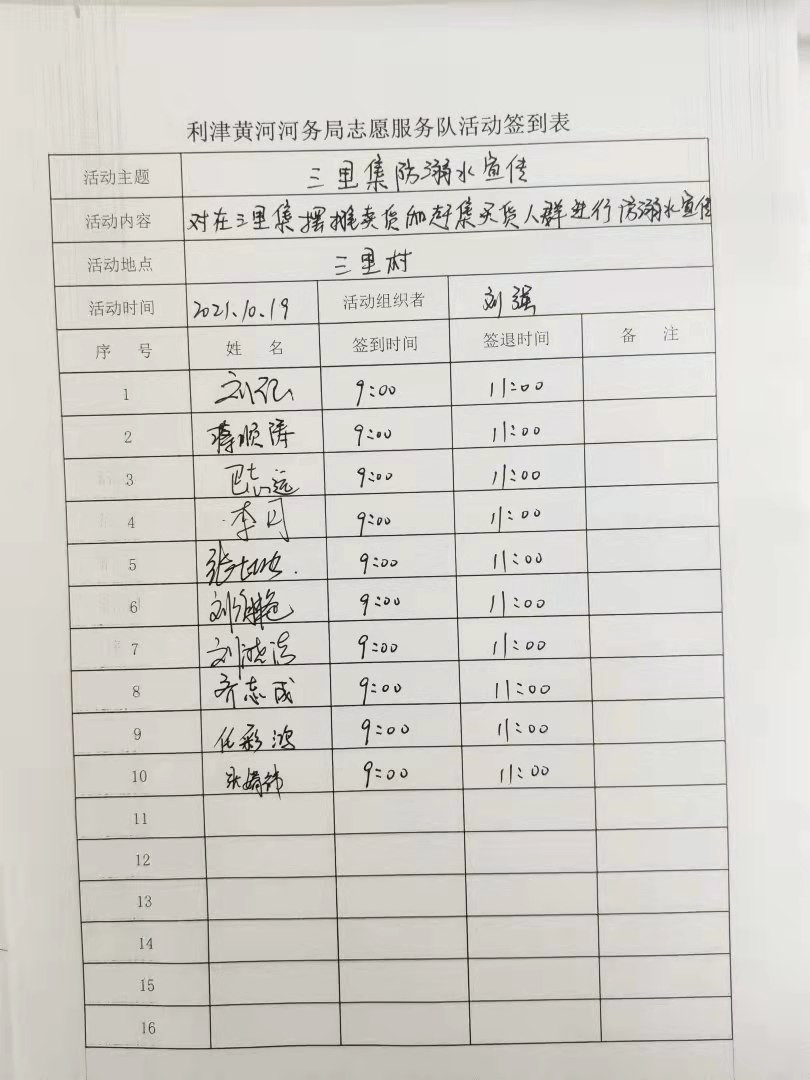 利津黄河河务局志愿服务队活动签到表
活动主题 三里集防溺水宣传
活动内容 对在三里集摆摊卖货和赶集买货人群进行防溺水宣传
活动地点 三里村
活动时间 2021.10.19 活动组织者 刘强
序 号 姓 名 签到时间 签退时间 备 注
1 9:00 11:00
2 9:00 11:00
3 巴志远 9:00 11:00
4 李月 9:00 11:00
5 9:00 11:00
6 9:00 11:00
7 刘晓洁 9:00 11:00
8 齐志成 9:00 11:00
9 任彩鸿 9:00 11:00
10 9:00 11:00
11
12
13
14
15
16